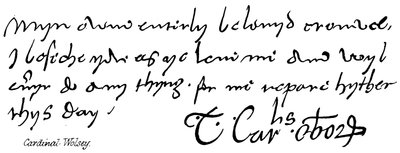 Myn owne entirly belovyd cromwel,
I beseche yow as ye love me and wyl
evyr do any thyng for me repare hyther
thys day
T. Carlis Ebor
Cardinal Wolsey.